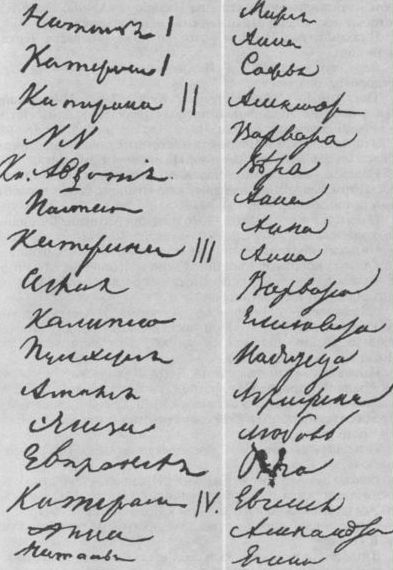 Наталья I
Катерина I
Катерина II
NN
Кн. Авдотія
Настасья
Катерина III
Аглая
Калипсо
Пульхерія
Амалія
Элиза
Евпраксея
Катерина IV.
Анна
Наталья
Марья
Анна
Софья
Александра
Варвара
Вѣра
Анна
Анна
Анна
Варвара
Елизавета
Надежда
Аграфена
Любовь
Ольга
Евгенія
Александра
Елена